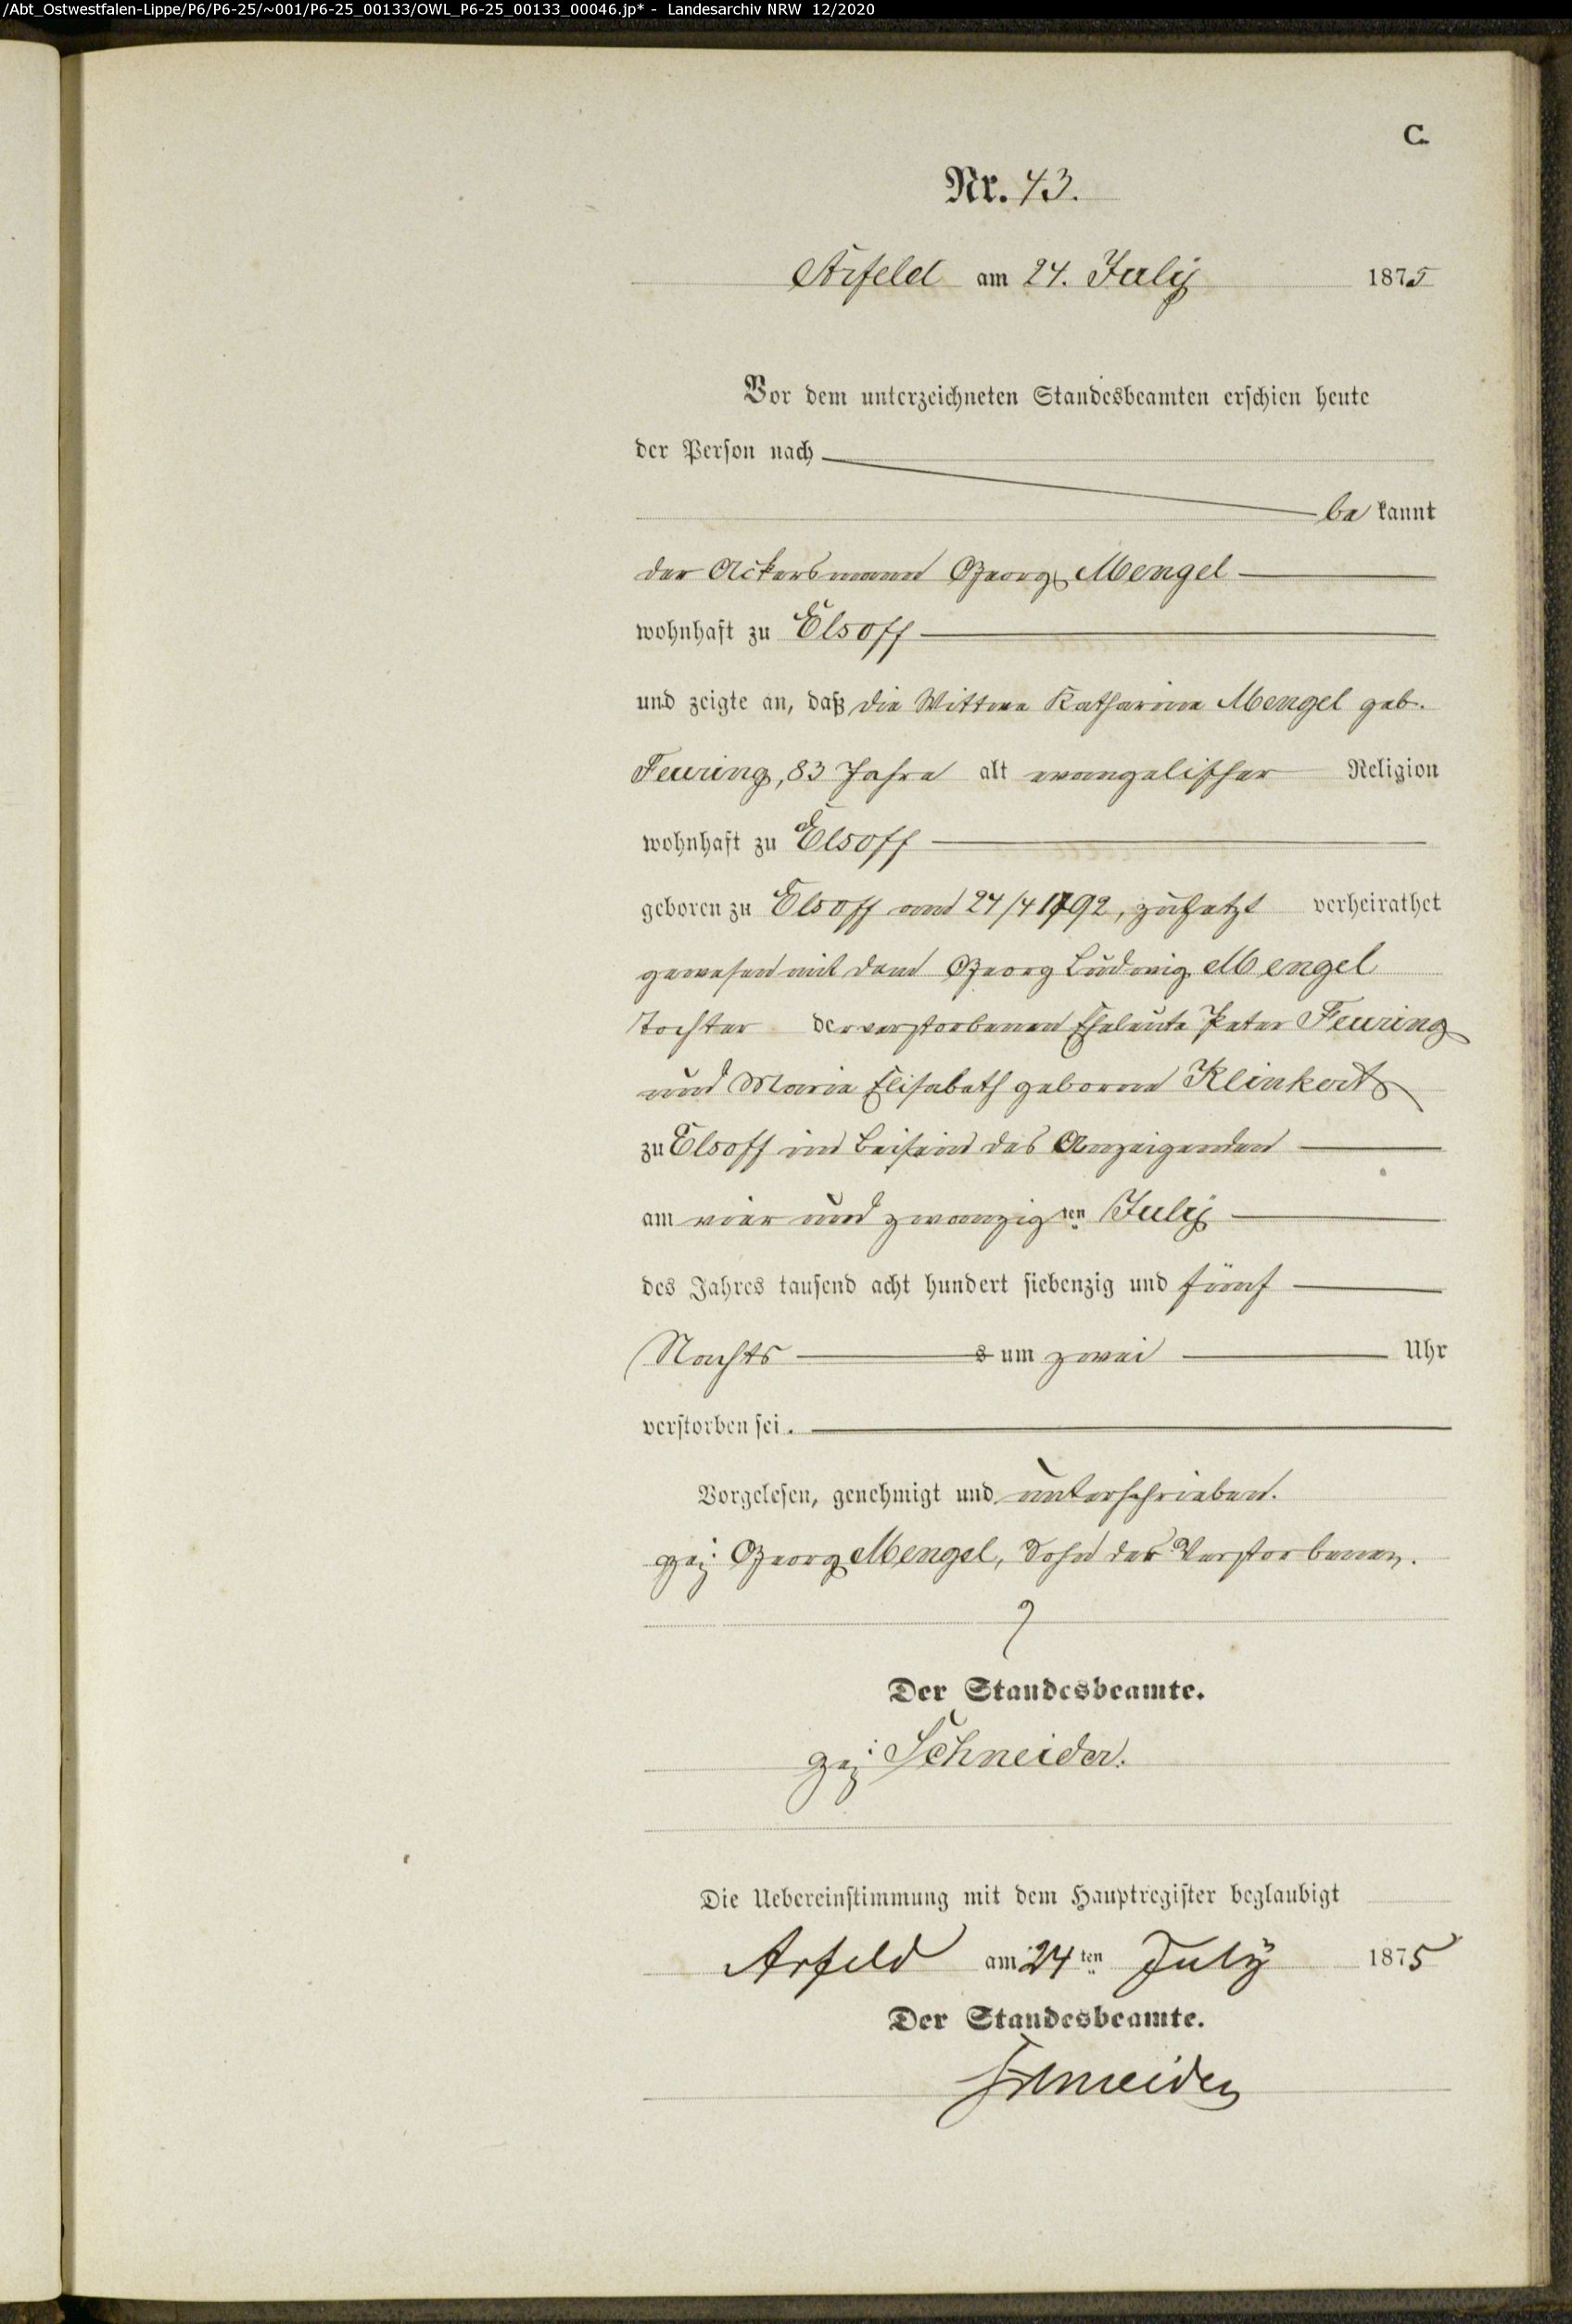 /Abt_Ostwestfalen-Lippe/P6/P6-25/~001/P6-25_00133/OWL_P6-25_00133_00046.jp* - Landesarchiv NRW 12/2020
C.
Nr. 43.
Arfeld am 24. July 1875
Vor dem unterzeichneten Standesbeamten erschien heute
der Person nach
be kannt
der Ackersmann Georg Mengel
wohnhaft zu Elsoff
und zeigte an, daß die Wittwe Katharine Mengel geb.
Feuring, 83 Jahre alt evangelischer Religion
wohnhaft zu Elsoff
geboren zu Elsoff am 24/4 1792, zuletzt verheirathet
gewesen mit dem Georg Ludwig Mengel
Tochter der verstorbenen Eheleute Peter Feuring
und Maria Elisabeth geborne Klinkert
zu Elsoff im Beisein des Anzeigenden
am vier und zwanzigten July
des Jahres tausend acht hundert siebenzig und fünf
Nachts s um zwei Uhr
verstorben sei.
Vorgelesen, genehmigt und unterschrieben.
gez: Georg Mengel, Sohn der Verstorbenen.
Der Standesbeamte.
gez: Schneider.
Die Uebereinstimmung mit dem Hauptregister beglaubigt
Arfeld am 24ten July 1875
Der Standesbeamte.
Schneider